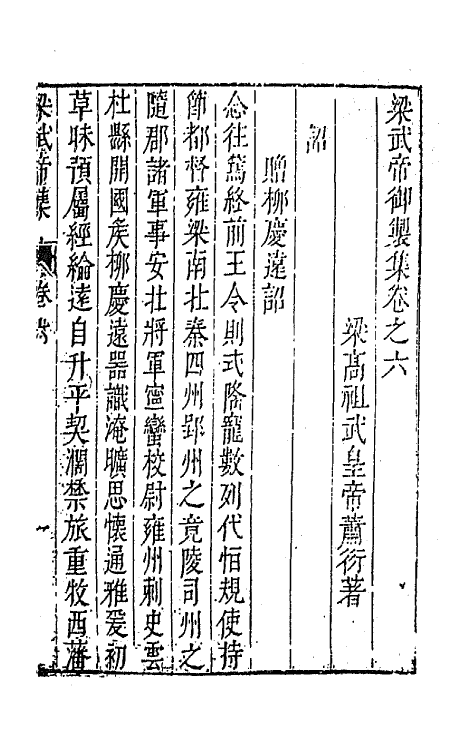 梁武帝御製集卷之六
梁高祖武皇帝蕭衍著
詔
贈柳慶遠詔
念往篤終前王令則式隆寵數列代恒規使持
節都督雍梁南北秦四州郢州之竟陵司州之
隨郡諸軍事安北將軍寧蠻校尉雍州刺史雲
杜縣開國侯柳慶遠器識淹曠思懷通雅爰初
草昧預屬經綸遠自升平契濶禁旅重牧西藩
梁武帝集 卷六 一